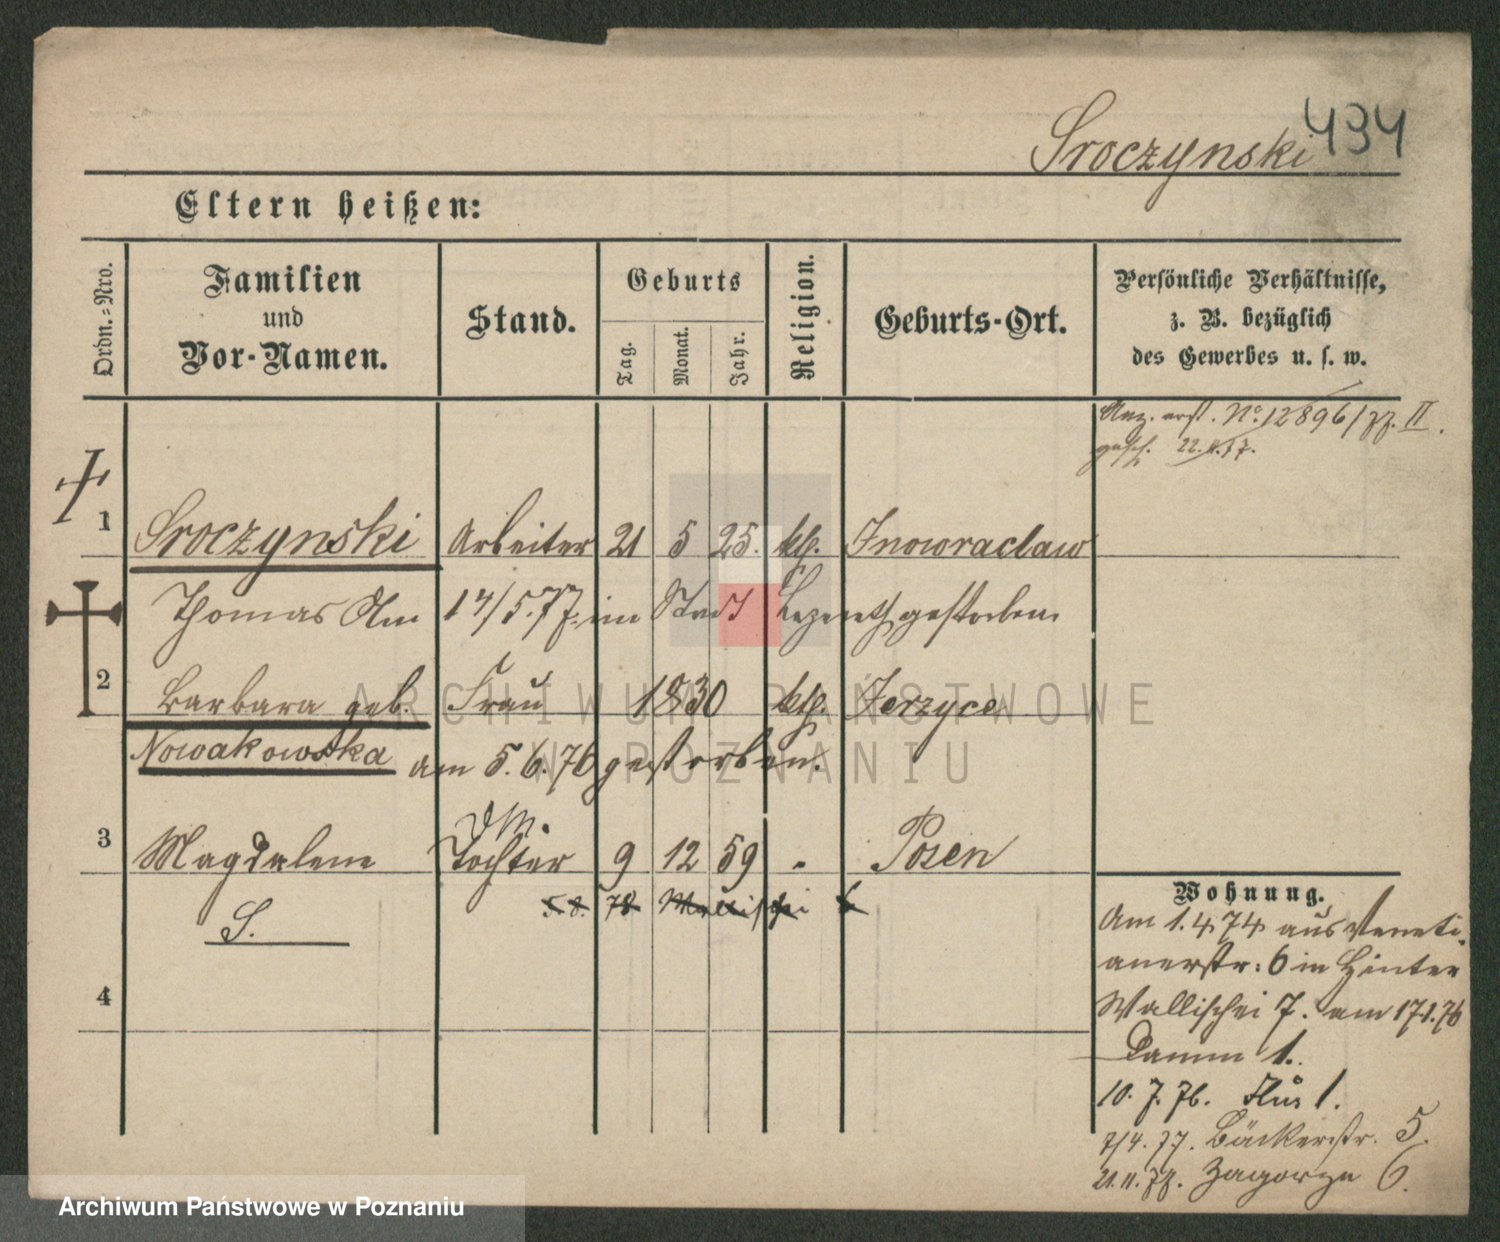 Sroczynski 434
Eltern heißen:
Ordn.-Nro.
Familien
und
Vor-Namen.
Stand.
Geburts
Tag.
Monat.
Jahr.
Religion.
Geburts-Ort.
Persönliche Verhältnisse,
z. B. bezüglich
des Gewerbes u. s. w.
Anz. erst. No. 12896/77. II.
1 Sroczynski Arbeiter 21 5 25. kth. Inowraclaw
Thomas Am 14/5.77. im Stadt Lazareth gestorben
2 Barbara geb. Frau 1830 kth. Jerzyce
Nowakowska am 5.6.76 gestorben.
3 Magdalene Tochter 9 12 59 Posen
S.
5.8. 78 Wallischei 6
4
Wohnung.
Am 1.4.74 aus Veneti-
anerstr: 6 in Hinter
Wallischei 7. am 17.1.76
Damm 1.
10. 7. 76. Flur 1.
7/4. 77. Bäckerstr. 5.
21.11.77. Zagorze 6.
ARCHIWUM PAŃSTWOWE
W POZNANIU
Archiwum Państwowe w Poznaniu